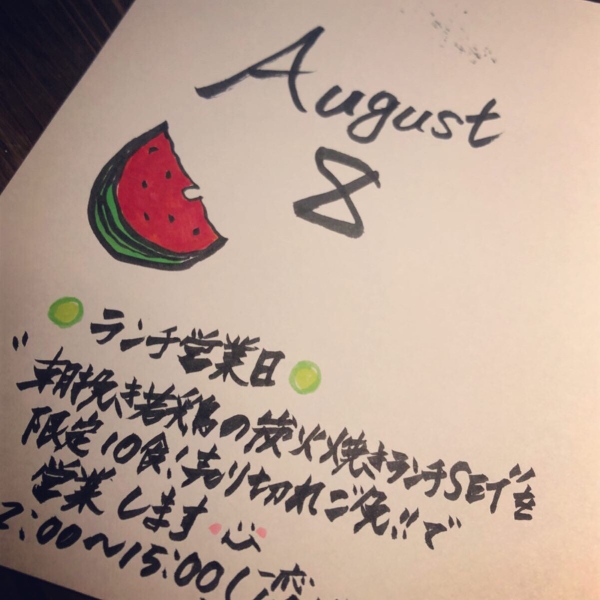 August
8
ランチ営業日
"朝挽き若鶏の炭火焼きランチSET"を
限定10食!売り切れご免!!で
営業します
2:00〜15:00(一応